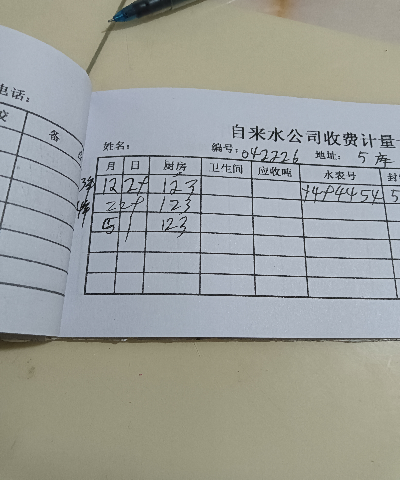 电话:
备
自来水公司收费计量
姓名: 编号: 042226 地址: 5 库
月 日 厨房 卫生间 应收吨 水表号 封
12 29 123 4494454 5
2 29 123
5 1 123